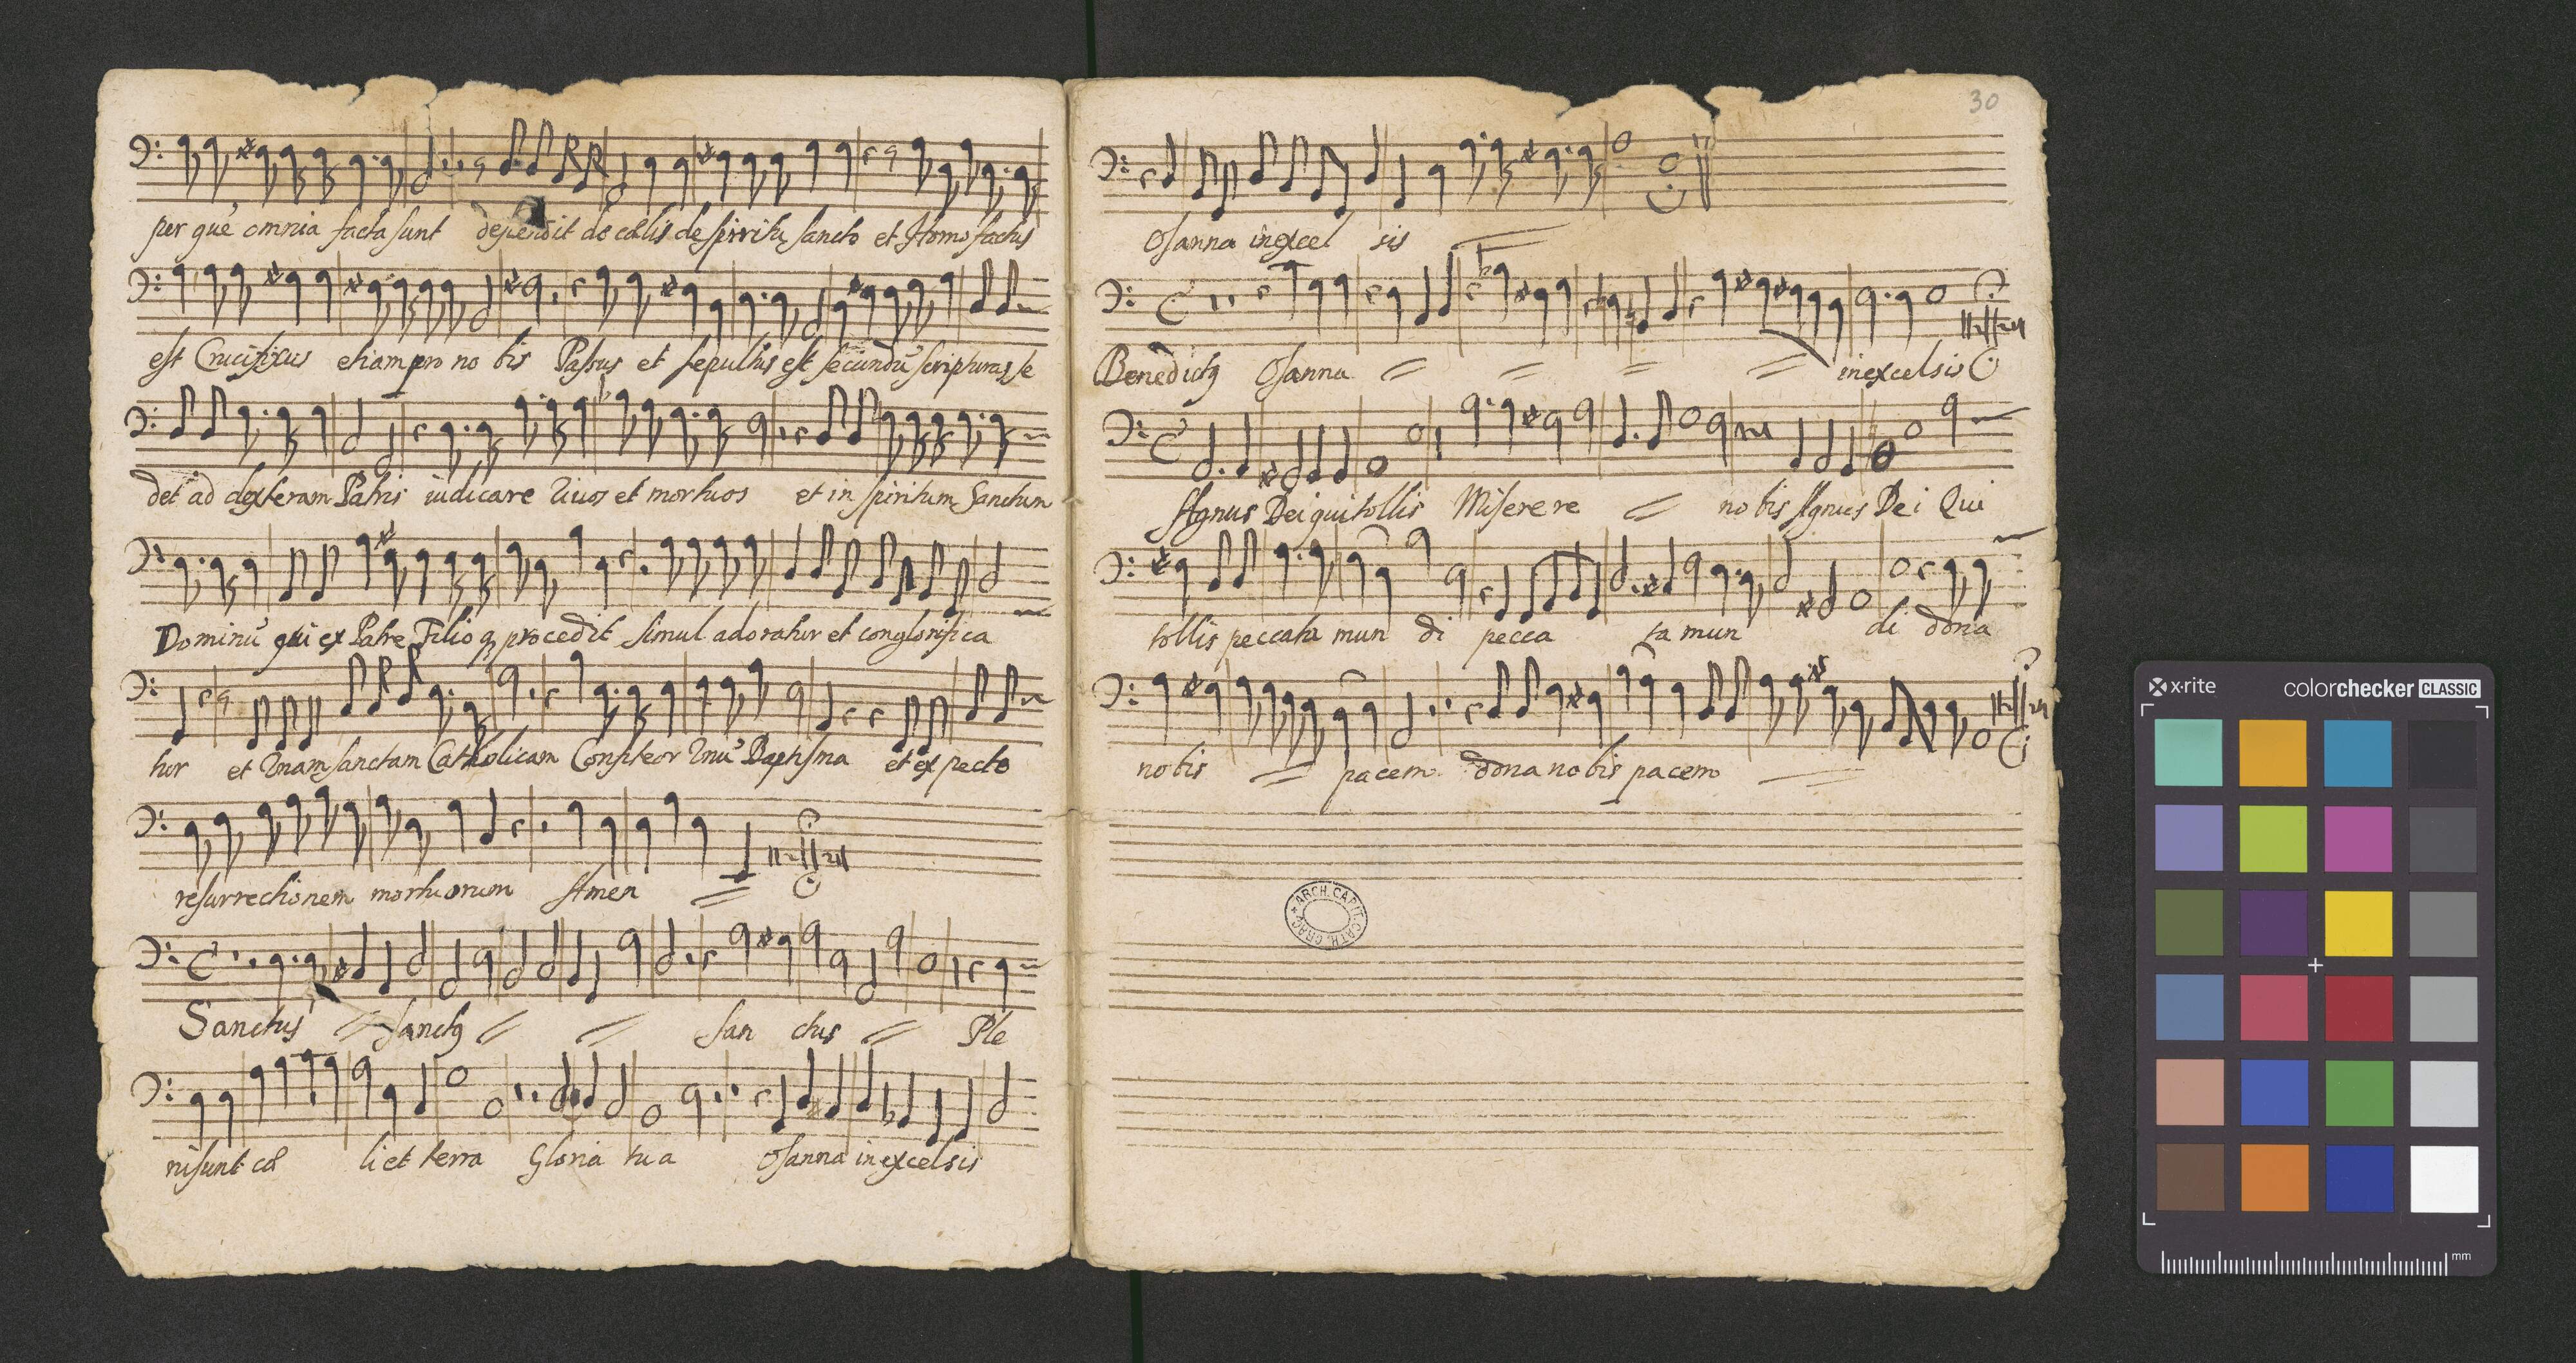 per quē omnia facta sunt descendit de cœlis de spirritu sancto et Homo factus
est Crucifixus etiam pro no bis Passus et sepultus est secundū scripturas se
det ad dexteram Patris iudicare Viuos et mortuos et in spiritum Sanctum
Dominū qui ex Patre Filioq procedit simul adoratur et conglorifica
tur et Vnam sanctam Catholicam Confiteor Vnū Baptisma et expecto
resurrectionem mortuorum Amen
Sanctus sanctq san ctus Ple
ni sunt cœ li et terra Gloria tua Osanna in excelsis
30
Osanna in excel sis
Benedictq Osanna in excelsis
Agnus Dei qui tollis Miserere nobis Agnus Dei Qui
tollis peccata mun di pecca ta mun di dona
nobis pacem dona nobis pacem
ARCH. CAPIT. CATH. CRAC.
x·rite colorchecker CLASSIC
mm